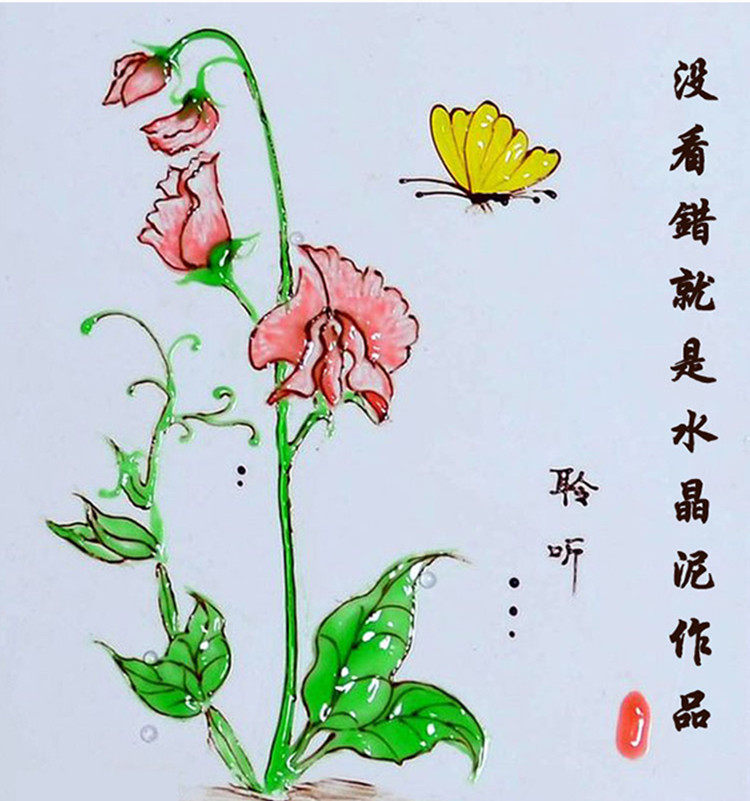 没看錯就是水晶泥作品
聆听